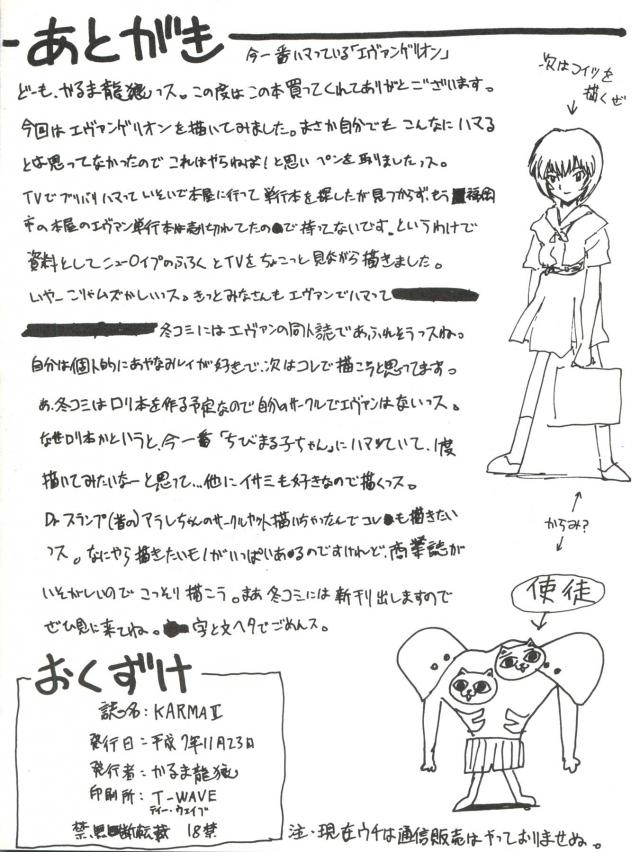 あとがき
今一番ハマっている「エヴァンゲリオン」
どーも、かるま龍狼っス。この度はこの本買ってくれてありがとございます。
今回はエヴァンゲリオンを描いてみました。まさか自分でもこんなにハマる
とは思ってなかったのでこれはやらねば!と思いペンを取りましたっス。
TVでブリバリハマっていそいで本屋に行って単行本を探したが見つからず、もう福岡
市の本屋のエヴァン単行本は売り切れてたので持ってないです。というわけで
資料としてニュー〇イプのふろくとTVをちょこっと見ながら描きました。
いやーごっやムズかしいっス。きっとみなさんもエヴァンでハマって
冬コミにはエヴァンの同人誌であふれそうっスね。
自分は個人的にあやなみレイが好きで、次はコレで描こうと思ってます。
あ、冬コミはロリ本を作る予定なので自分のサークルでエヴァンはないっス。
なぜロリ本かというと、今一番「ちびまる子ちゃん」にハマっていて、1度
描いてみたいなーと思って…他にイサミも好きなので描くっス。
Dr.スランプ(昔の)アラレちゃんのサークルカット描いちゃったんでコレも描きたい
っス。なにやら描きたいモノがいっぱいあるのですけれど、商業誌が
いそがしいのでこっそり描こう。まあ冬コミには新刊出しますので
ぜひ見に来てね。字と文ヘタでごめんス。
次はコイツを
描くぜ
からみ?
使徒
おくずけ
誌名:KARMAⅡ
発行日:平成7年11月23日
発行者:かるま龍狼
印刷所:T-WAVE
ティー・ウェイブ
禁無断転載 18禁
注・現在ウチは通信販売はやっておりませぬ。